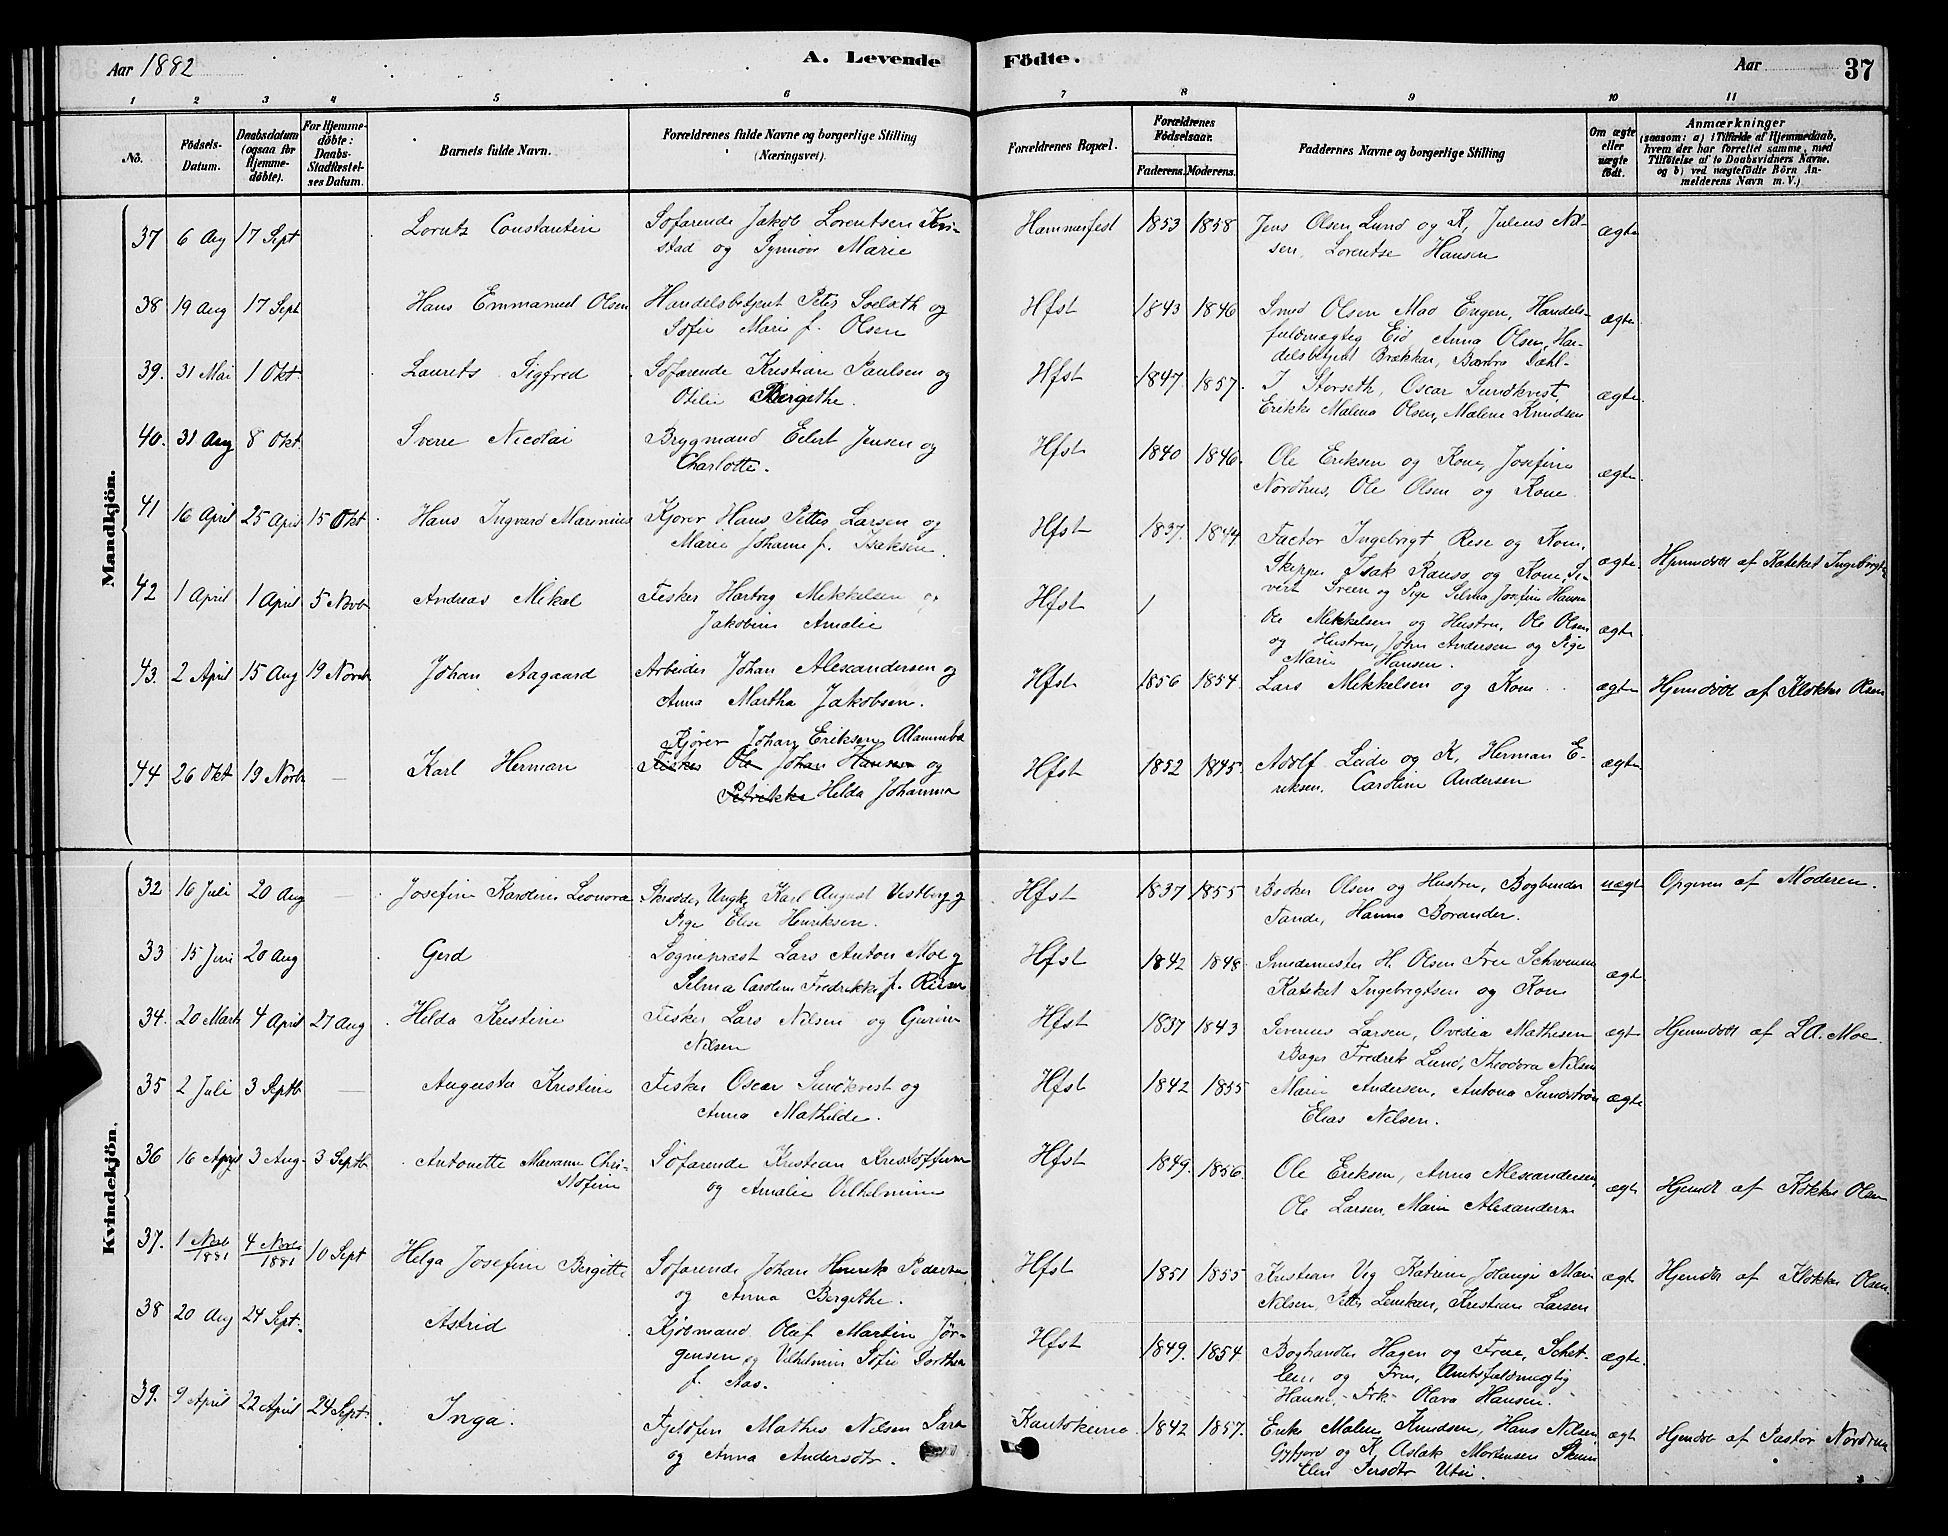 Aar 1882
A. Levende Födte.
Aar
37
1 2 3 4 5 6 7 8 9 10 11
No.
Födsels-Datum.
Daabsdatum (ogsaa for Hjemmedöbte).
For Hjemmedöbte: Daabs-Stadfæstelses Datum.
Barnets fulde Navn.
Forældrenes fulde Navne og borgerlige Stilling (Næringsvei).
Forældrenes Bopæl.
Forældrenes Födselsaar.
Faderens. Moderens.
Faddernes Navne og borgerlige Stilling
Om ægte eller uægte födt.
Anmærkninger
(saasom: a) i Tilfælde af Hjemmedaab, hvem der har forrettet samme, med Tilföielse af to Daabsvidners Navne, og b) ved uægtefödte Börn Anmelderens Navn m. V.)
Mandkjön.
37 6 Aug 17 Sept Lorentz Constantin Söfarende Jakob Lorentsen
og Synnöve Marie Hammerfest 1853 1858 Jens Olsen Lund og K, Julius Nilsen, Lorentse Hansen ægte
38 19 Aug 17 Sept Hans Emmanuel Olsen Handelsbetjent Peter og
Sofie Marie f. Olsen Hfst 1843 1846 Olsen Mao Engen, Handelsfuldmægtig Eid Anna Olsen, Handelsbetjent Brækkan, Barbro Dahl ægte
39. 31 Mai 1 Okt. Laurits Sigfred Söfarende Kristian Paulsen og
Otelie Bergithe. Hfst 1847 1857. J Storseth, Oscar Sundkvist, Erikke Malena Olsen, Malene Knudsen ægte
40. 31 Aug 8 Okt. Sverre Nicolai Brygmand Eilert Jensen og
Charlotte. Hfst 1840 1846. Ole Eriksen og Kone, Josefine Nordhus, Ole Olsen og Kone ægte
41 16 April 25 April 15 Okt Hans Ingvard Marinius Kjörer Hans Petter Larsen og
Marie Johanne f. Isaksen. Hfst 1837. 1844 Factor Ingebrigt Rise og Kone, Skipper Isak Ranso og Kone, Sivert Sveen og Pige Selma Josefine Hansen ægte Hjemmdöbt af Kateket Ingebrigtsen
42 1 April 1 April 5 Novb Andreas Mikal Fisker Hartvig Mikkelsen og
Jakobine Amalie Hfst / Ole Mikkelsen og Hustru, Ole Olsen og Hustru, John Andersen og Pige Marie Hansen. ægte
43. 2 April 15 Aug 19 Novb Johan Aagaard Arbeider Johan Alexandersen og
Anna Martha Jakobsen. Hfst 1856 1854 Lars Mikkelsen og Kone ægte Hjemdöbt af Klokker Olsen
44 26 Okt 19 Novb — Karl Herman Kjörer Johan Eriksen
Fisker Ole Johan Hansen og
Petrikke Hilda Johanna Hfst 1852 1845. Adolf Leide og K, Herman Eriksen, Caroline Andersen ægte
Kvindekjön.
32 16 Juli 20 Aug — Josefine Karoline Leonora Skrædder, Ungk. Karl August Vestberg og
Pige Elise Henriksen. Hfst 1837 1855 Bödker Olsen og Hustru, Bogbinder Tande, Hanna Borander. uægt Opgiven af Moderen.
33 15 Juni 20 Aug Gerd Sognepræst Lars Anton Moe og
Selma Caroline Fredrikke f. Hfst 1842 1848. Smedemester H. Olsen Frue Schwensen Kateket Ingebrigtsen og Kone ægte
34. 20 Marts 4 April 27 Aug Hilda Kristine Fisker Lars Nilsen og
Nilsen Hfst 1837 1843 Severus Larsen, Ovedia Mathisen Bager Fredrik Lund, Theodora Nilsen ægte Hjemmdöbt af L.A. Moe.
35 2 Juli 3 Septb — Augusta Kristine Fisker Oscar Sundkvist og
Anna Mathilde. Hfst 1842 1855 Marie Andersen, Antona Sundström Elias Nilsen. ægte
36 16 April 3 Aug. 3 Septb Antonette Marianne Christofine Söfarende Kristian Kristoffersen
og Amalie Vilhelmine Hfst 1849. 1856. Ole Eriksen, Anna Alexandersen, Ole Larsen, Marie Alexandersen ægte Hjemdt af Klokker Olsen
37. 1 Novb 1881 4 Novb 1881 10 Sept Helga Josefine Bergitte Söfarende Johan Henrik Pedersen
og Anna Bergithe. Hfst 1851 1855 Kristian Vig Katrine Marie Nilsen, Petter Kristian Larsen ægt Hjemdöbt af Klokker Olsen
38 20 Aug 24 Sept. Astrid Kjöbmand Olaf Martin Jörgensen og Vilhelmine Sofie Dorthea
f. Aas. Hfst 1849. 1854. Boghandler Hagen og Frue, og Frue, Amtsfuldmægtig Hansen, Frk. Olava Hansen. ægte.
39. 9 April 22 April 24 Sept. Inga. Fjeldfin Mathis Nilsen Sara
og Anna Andersdtr. Kautokeino. 1842 1857. Erik Malin Knudsen, Hans Nilsen og K, Aslak Mortensen Elen Persdtr Utsi. ægt Hjemdöbt af Pastor Nordrum